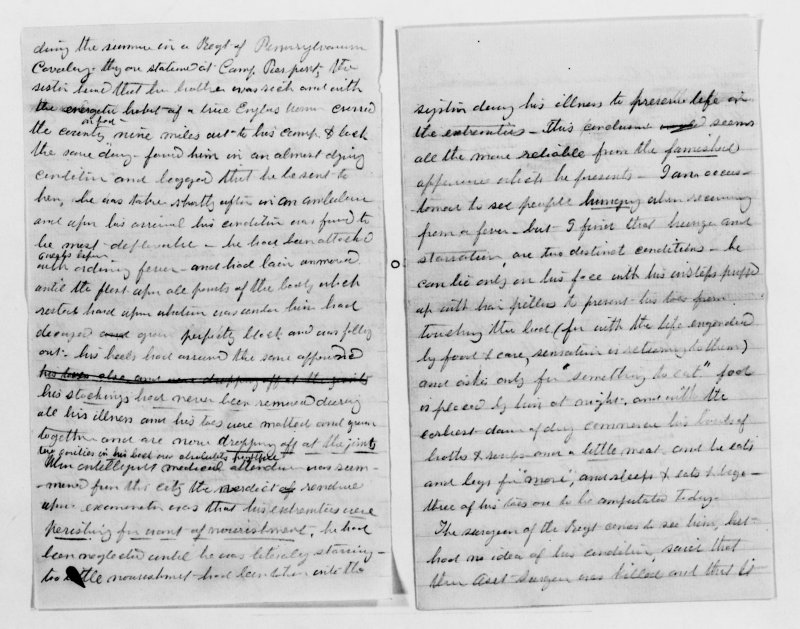 during the summer in a Regt of Pennsylvania
Cavalry. They are stationed at Camp Pierpont, the
sister heard that her brother was sick and with
the energetic habit of a true English woman crossed
the country on foot nine miles out to his camp & back
the same day - found him in an almost dying
condition and begged that he be sent to
her, he was taken shortly after in an ambulance
and upon his arrival his condition was found to
be most deplorable - he had been attacked
weeks before
with ordinary fever - and had lain unmoved
until the flesh upon all points of the body which
rested hard upon whatever was under him had
decayed and grown perfectly black and was falling
out - his heels had assumed the same appearance
his toes also and were dropping off at the joints
his stockings had never been removed during
all his illness and his toes were matted and grown
together and are now dropping off at the joints
the cavities in his back are absolutely frightful
When intelligent medical attendance was sum-
moned from the city the verdict of rendered
upon examination was that his extremities were
perishing for want of nourishment. he had
been neglected until he was literally starving -
too little nourishment had been taken into the
system during his illness to preserve life in
the extremities - this conclusion seems
all the more reliable from the famished
appearance which he presents - I am accus-
tomed to see people hungry when recovering
from a fever - but I find that hunger and
starvation are two distinct conditions - he
can lie only on his face with his insteps propped
up with hair pillows to prevent his toes from
touching the bed (for with the life engendered
by food & care, sensation is returning to them)
and asks only for "something to eat" food
is placed by him at night, and with the
earliest dawn of day commences his bowls of
broths & soups and a little meat. and he eats
and begs for "more", and sleeps & eats & begs -
three of his toes are to be amputated today.
The surgeon of the Regt comes to see him, but
had no idea of his condition, said that
their Asst Surgeon was killed and that it